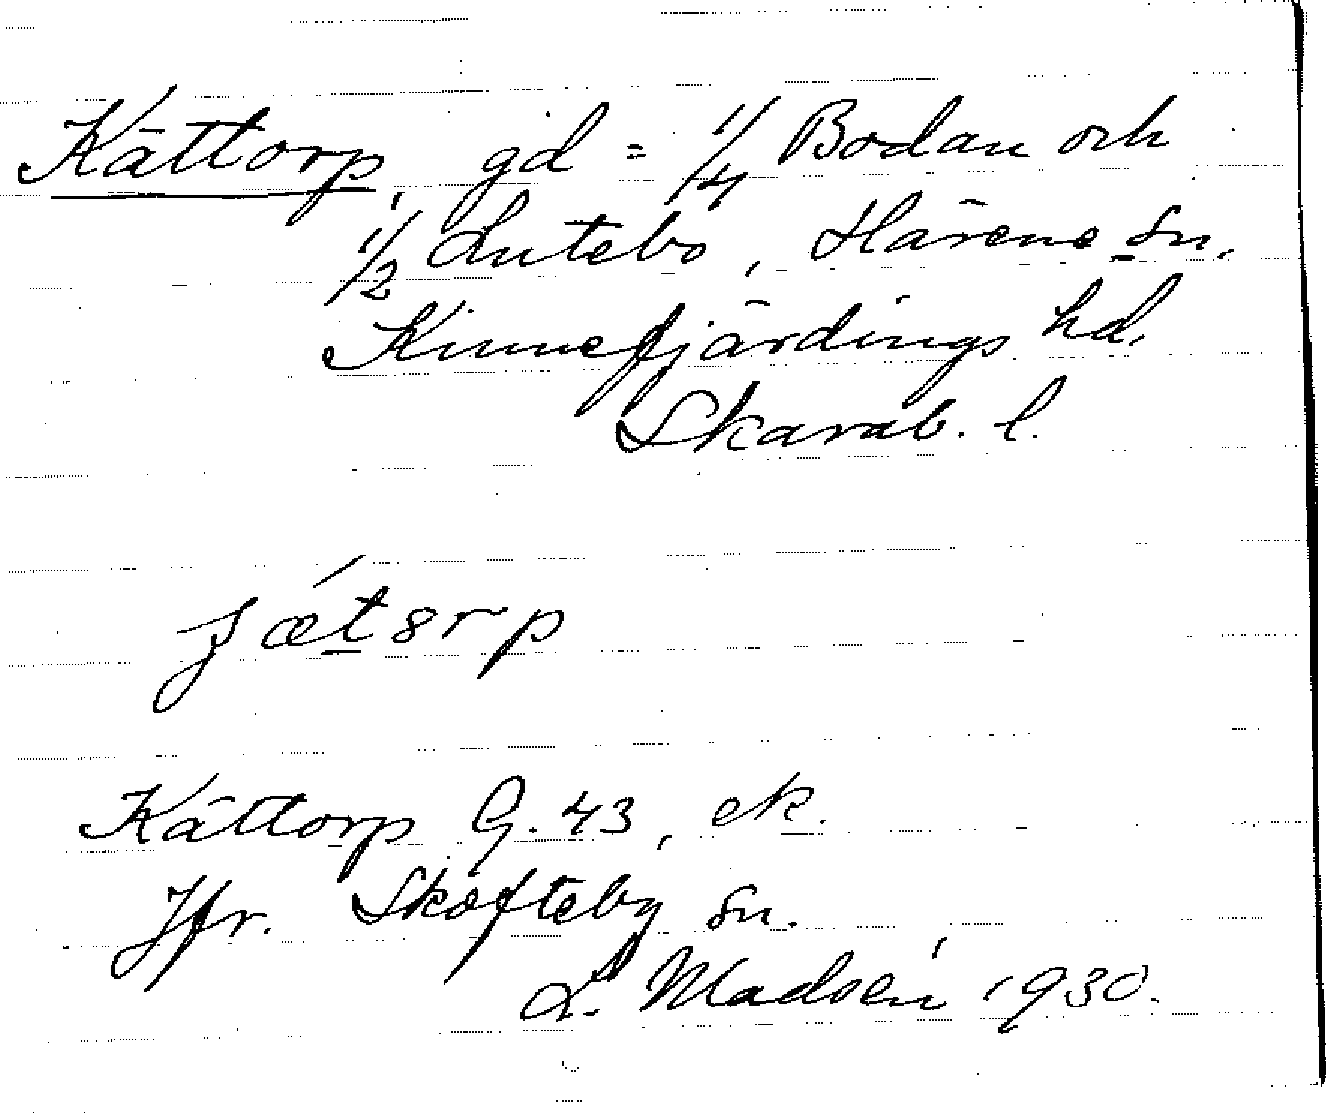 Kättorp, gd = 1/4 Bodan och
1/2 Lutebo, Härene sn,
Kinnefjärdings hd,
Skarab. l.
Kättorp G. 43, ek.
Jfr. Skofteby sn.
L. Madsén 1930.